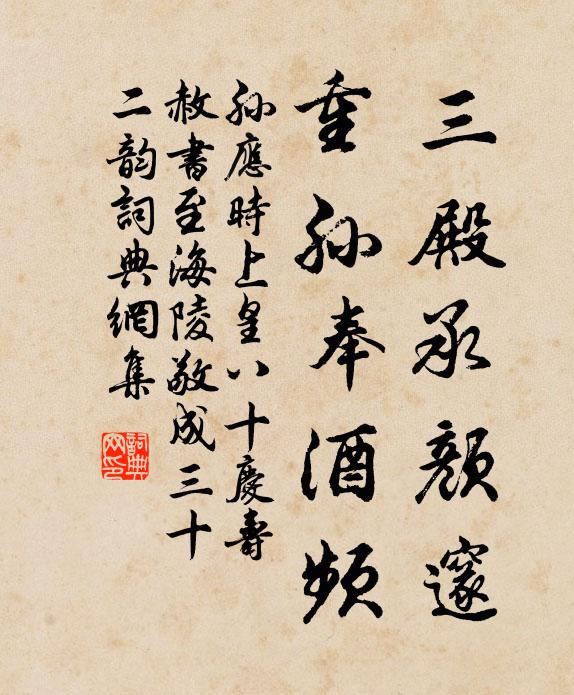 三殿承颜邃
重孙奉酒频
孙應時上皇八十慶壽
赦書至海陵敬成三十
二韵詞典網集
詞典網印